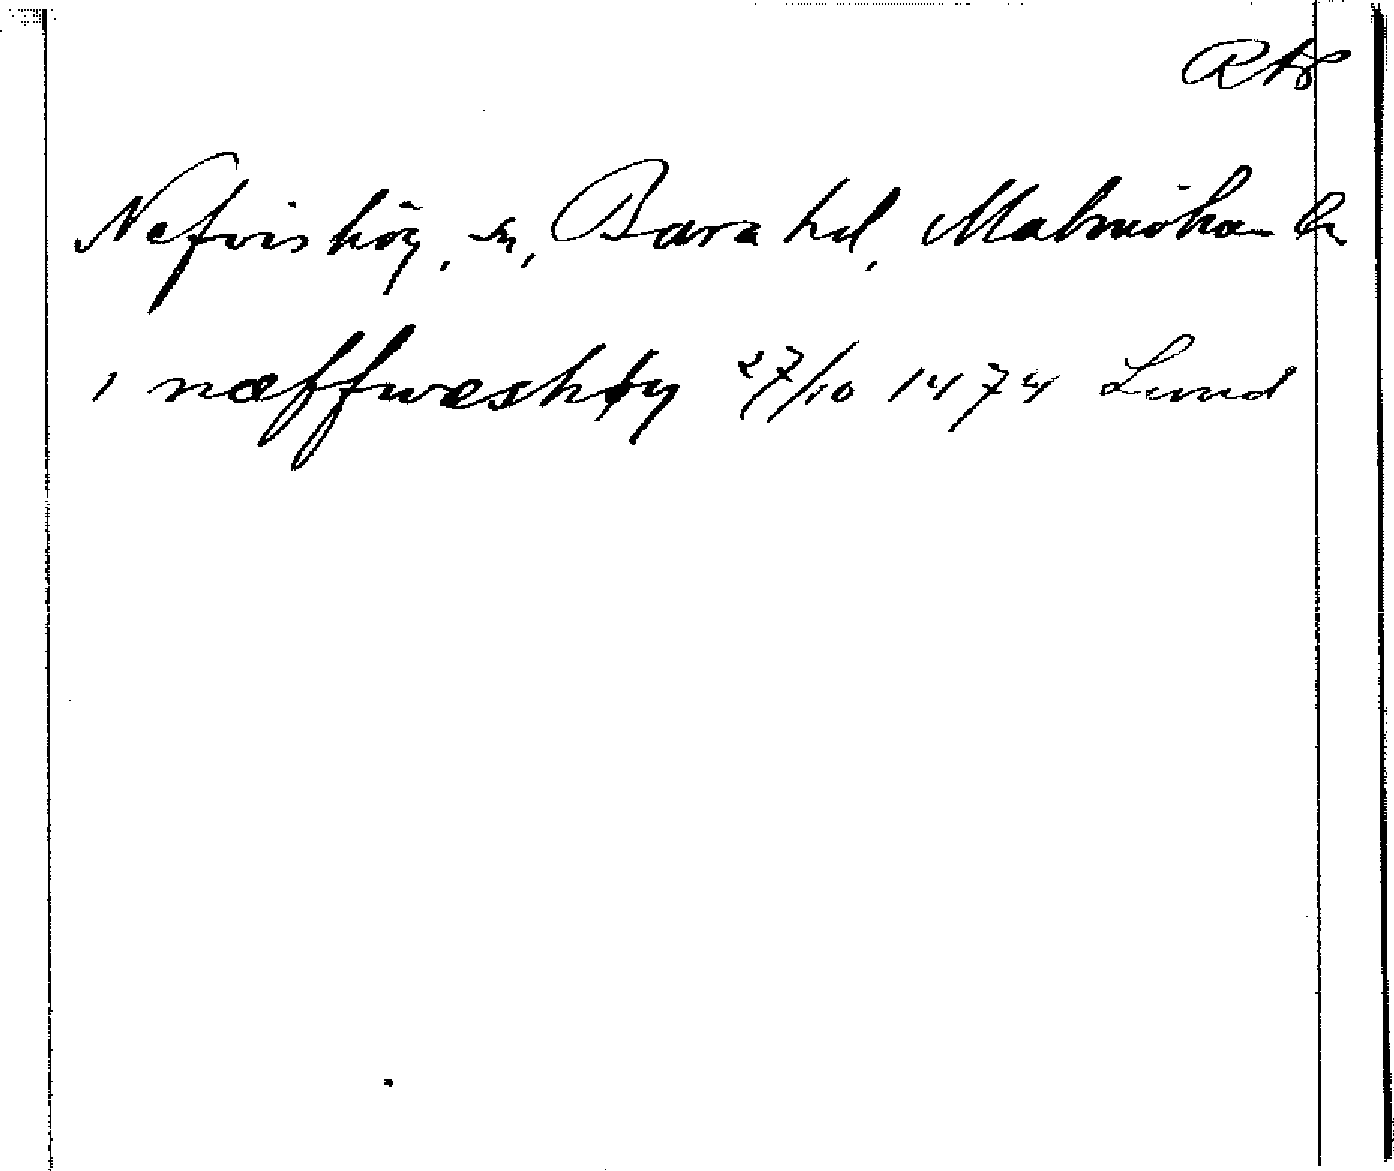 Nefvishög, sn, Bara hd, Malmöhus län
i næffwæshøy 27/10 1474 Lund